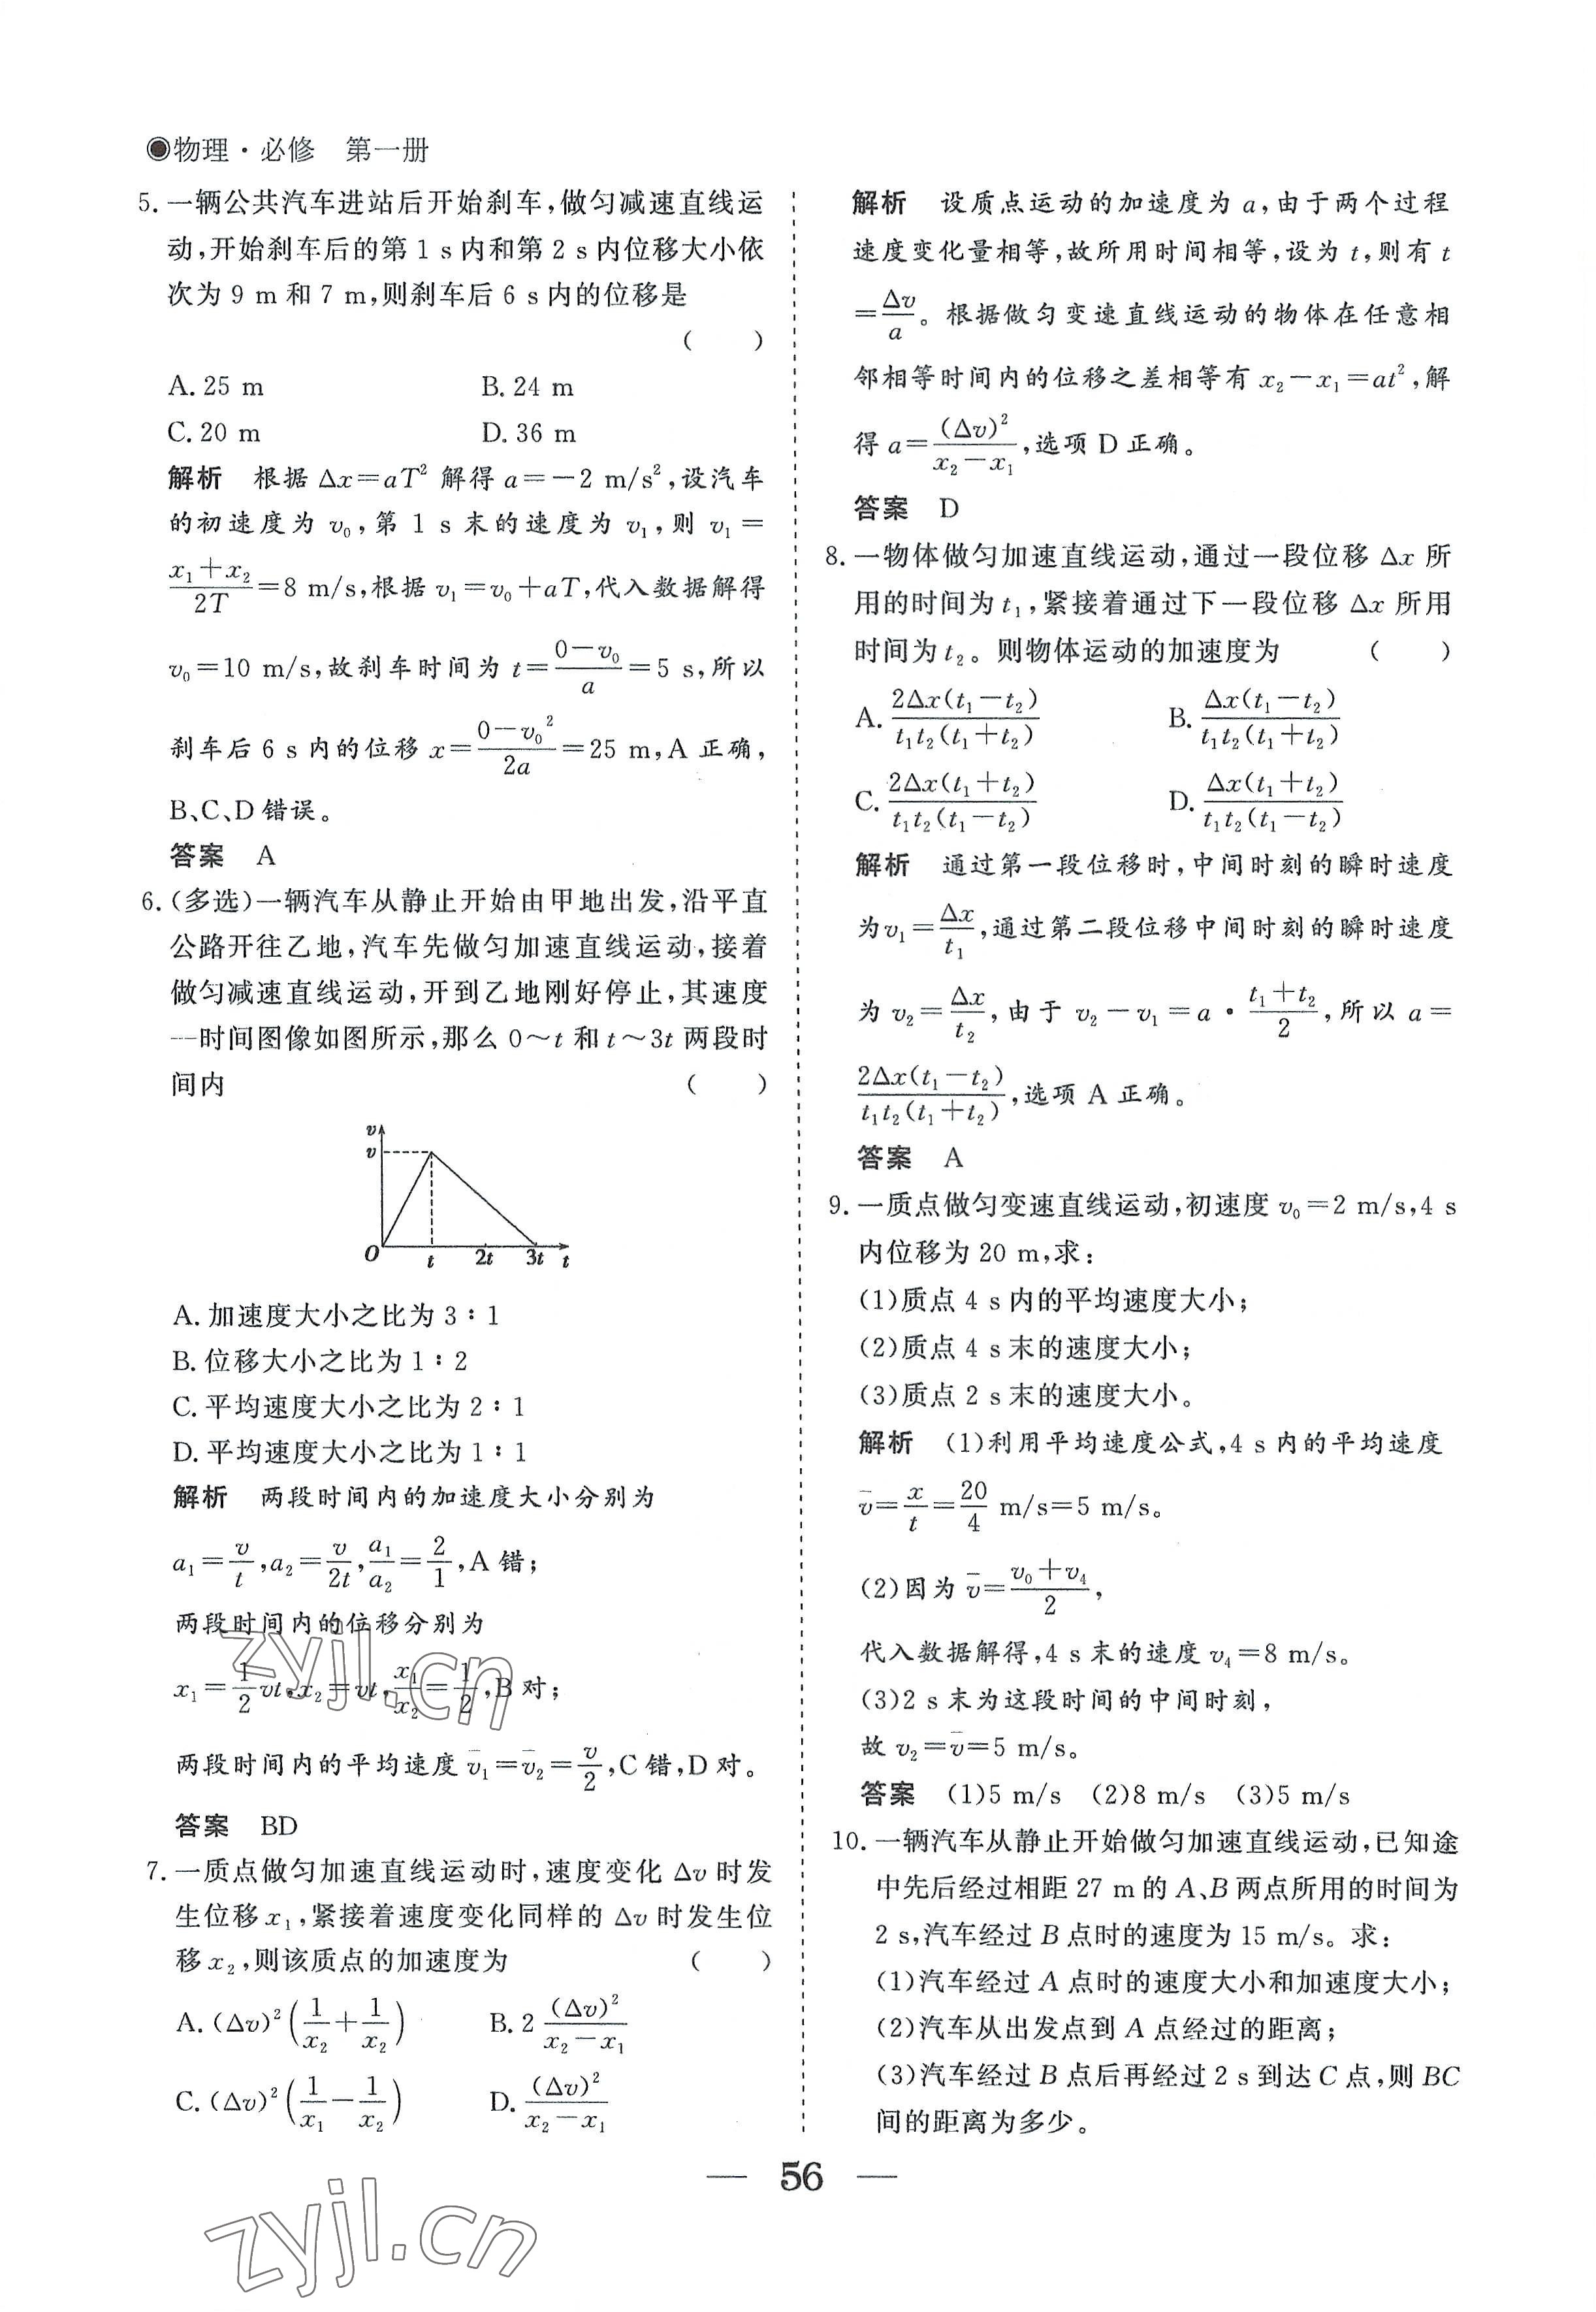 物理·必修 第一册
5. 一辆公共汽车进站后开始刹车,做匀减速直线运
动,开始刹车后的第 1 s 内和第 2 s 内位移大小依
次为 9 m 和 7 m,则刹车后 6 s 内的位移是
( )
A. 25 m B. 24 m
C. 20 m D. 36 m
解析 根据 Δx=aT² 解得 a=-2 m/s²,设汽车
的初速度为 v₀,第 1 s 末的速度为 v₁,则 v₁=
(x₁+x₂)/(2T)=8 m/s,根据 v₁=v₀+aT,代入数据解得
v₀=10 m/s,故刹车时间为 t=(0-v₀)/a=5 s,所以
刹车后 6 s 内的位移 x=(0-v₀²)/(2a)=25 m,A 正确,
B、C、D 错误。
答案 A
6. (多选)一辆汽车从静止开始由甲地出发,沿平直
公路开往乙地,汽车先做匀加速直线运动,接着
做匀减速直线运动,开到乙地刚好停止,其速度
—时间图像如图所示,那么 0~t 和 t~3t 两段时
间内 ( )
v
v
O t 2t 3t t
A. 加速度大小之比为 3∶1
B. 位移大小之比为 1∶2
C. 平均速度大小之比为 2∶1
D. 平均速度大小之比为 1∶1
解析 两段时间内的加速度大小分别为
a₁=v/t,a₂=v/(2t),a₁/a₂=2/1,A 错;
两段时间内的位移分别为
x₁=(1/2)vt,x₂=vt,x₁/x₂=1/2,B 对;
两段时间内的平均速度 v̄₁=v̄₂=v/2,C 错,D 对。
答案 BD
7. 一质点做匀加速直线运动时,速度变化 Δv 时发
生位移 x₁,紧接着速度变化同样的 Δv 时发生位
移 x₂,则该质点的加速度为 ( )
A. (Δv)²(1/x₂+1/x₂) B. 2 (Δv)²/(x₂-x₁)
C. (Δv)²(1/x₁-1/x₂) D. (Δv)²/(x₂-x₁)
解析 设质点运动的加速度为 a,由于两个过程
速度变化量相等,故所用时间相等,设为 t,则有 t
=Δv/a。根据做匀变速直线运动的物体在任意相
邻相等时间内的位移之差相等有 x₂-x₁=at²,解
得 a=(Δv)²/(x₂-x₁),选项 D 正确。
答案 D
8. 一物体做匀加速直线运动,通过一段位移 Δx 所
用的时间为 t₁,紧接着通过下一段位移 Δx 所用
时间为 t₂。则物体运动的加速度为 ( )
A. 2Δx(t₁-t₂)/(t₁t₂(t₁+t₂)) B. Δx(t₁-t₂)/(t₁t₂(t₁+t₂))
C. 2Δx(t₁+t₂)/(t₁t₂(t₁-t₂)) D. Δx(t₁+t₂)/(t₁t₂(t₁-t₂))
解析 通过第一段位移时,中间时刻的瞬时速度
为v₁=Δx/t₁,通过第二段位移中间时刻的瞬时速度
为 v₂=Δx/t₂,由于 v₂-v₁=a·(t₁+t₂)/2,所以 a=
2Δx(t₁-t₂)/(t₁t₂(t₁+t₂)),选项 A 正确。
答案 A
9. 一质点做匀变速直线运动,初速度 v₀=2 m/s,4 s
内位移为 20 m,求:
(1)质点 4 s 内的平均速度大小;
(2)质点 4 s 末的速度大小;
(3)质点 2 s 末的速度大小。
解析 (1)利用平均速度公式,4 s 内的平均速度
v̄=x/t=20/4 m/s=5 m/s。
(2)因为 v̄=(v₀+v₄)/2,
代入数据解得,4 s 末的速度 v₄=8 m/s。
(3)2 s 末为这段时间的中间时刻,
故 v₂=v̄=5 m/s。
答案 (1)5 m/s (2)8 m/s (3)5 m/s
10. 一辆汽车从静止开始做匀加速直线运动,已知途
中先后经过相距 27 m 的 A、B 两点所用的时间为
2 s,汽车经过 B 点时的速度为 15 m/s。求:
(1)汽车经过 A 点时的速度大小和加速度大小;
(2)汽车从出发点到 A 点经过的距离;
(3)汽车经过 B 点后再经过 2 s 到达 C 点,则 BC
间的距离为多少。
— 56 —
zyjl.cn
zyjl.cn